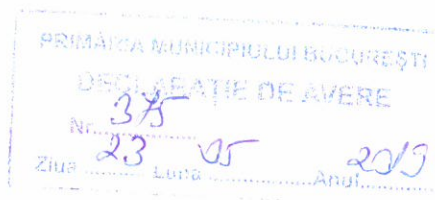 PRIMĂRIA MUNICIPIULUI BUCUREŞTI
DECLARAŢIE DE AVERE
Nr. 375
Ziua 23 Luna 05 Anul 2019